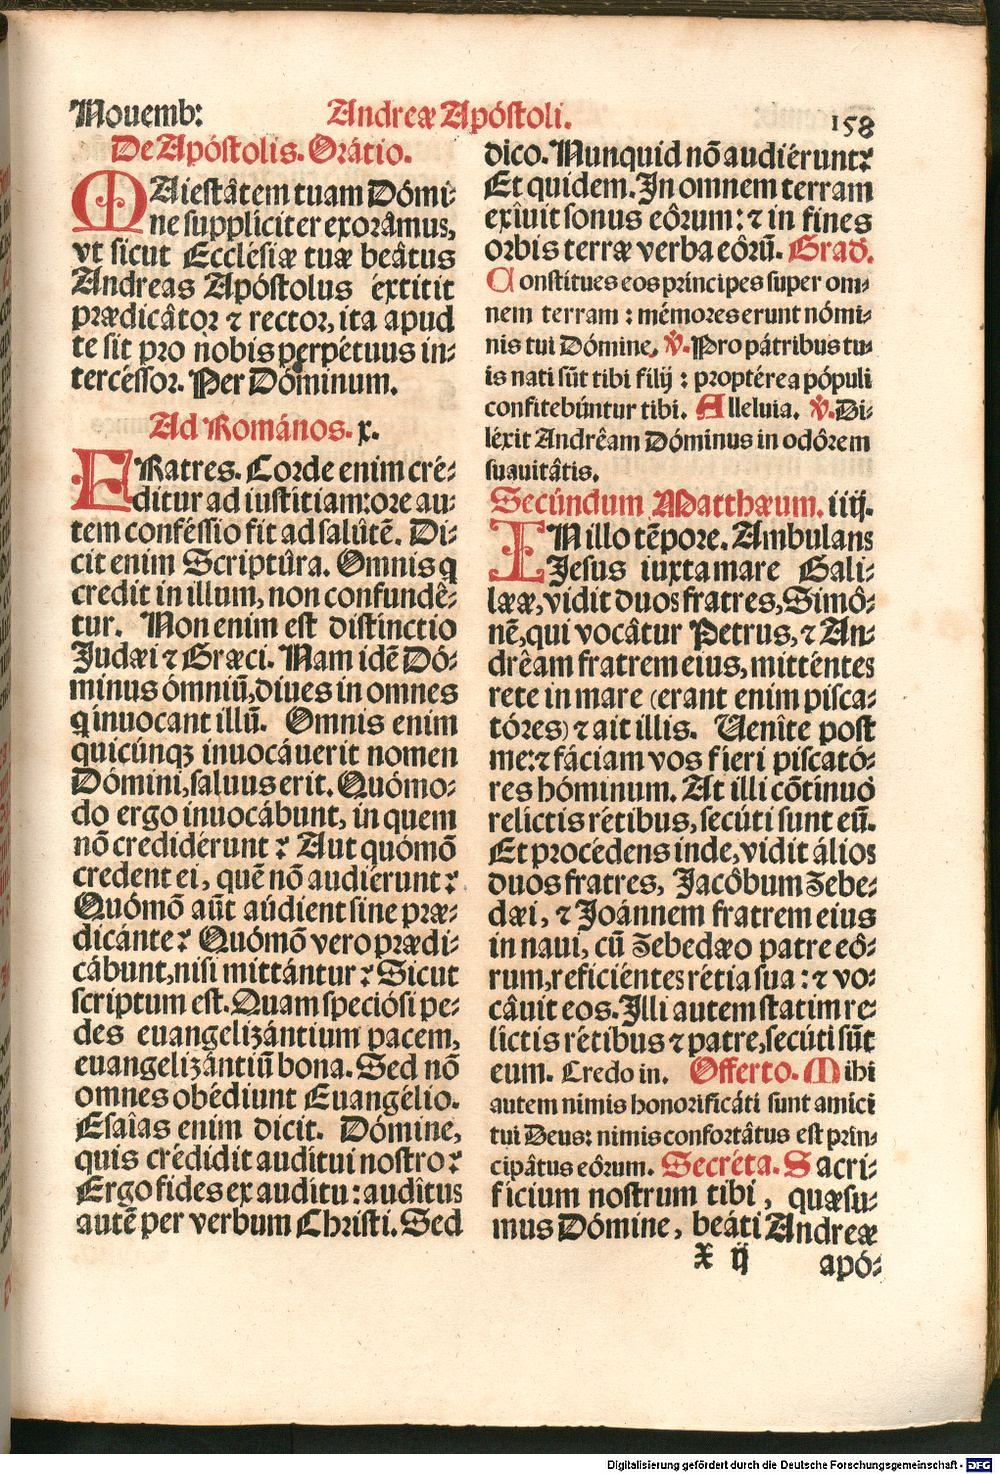 Nouemb: Andreæ Apóstoli. 158
De Apóstolis. Orâtio.
MAiestâtem tuam Dómi-
ne supplíciter exorâmus,
vt sicut Ecclésiæ tuæ beâtus
Andreas Apóstolus éxtitit
prædicâtor ⁊ rector, ita apud
te sit pro nobis perpétuus in-
tercéssor. Per Dóminum.
Ad Romános. x.
FRatres. Corde enim cré-
ditur ad iustitiam: ore au-
tem conféssio fit ad salûtē. Di-
cit enim Scriptûra. Omnis q
credit in illum, non confundê-
tur. Non enim est distinctio
Judæi ⁊ Græci. Nam idē Dó-
minus ómniū, diues in omnes
q inuocant illū. Omnis enim
quicúnqꝫ inuocáuerit nomen
Dómini, saluus erit. Quómo-
do ergo inuocábunt, in quem
nō credidérunt? Aut quómō
credent ei, quē nō audierunt?
Quómō aūt aúdient sine præ-
dicánte? Quómō vero prædi-
cábunt, nisi mittántur? Sicut
scriptum est. Quam speciósi pe-
des euangelizántium pacem,
euangelizántiū bona. Sed nō
omnes obédiunt Euangélio.
Esaîas enim dicit. Dómine,
quis crédidit auditui nostro?
Ergo fides ex auditu: auditus
autē per verbum Christi. Sed
dico. Nunquid nō audiérunt?
Et quidem. In omnem terram
exîuit sonus eôrum: ⁊ in fines
orbis terræ verba eôrū. Grad.
Constitues eos príncipes super om-
nem terram: mémores erunt nómi-
nis tui Dómine. ℣. Pro pátribus tu-
is nati sūt tibi filij: proptérea pópuli
confitebúntur tibi. Alleluia. ℣. Di-
léxit Andrêam Dóminus in odôrem
suauitâtis.
Secúndum Matthæum. iiij.
IN illo tēpore. Ambulans
Jesus iuxta mare Gali-
lææ, vidit duos fratres, Simô-
nē, qui vocâtur Petrus, ⁊ An-
drêam fratrem eius, mitténtes
rete in mare (erant enim pisca-
tóres) ⁊ ait illis. Uenîte post
me: ⁊ fáciam vos fieri piscató-
res hóminum. At illi cōtinuò
relictis rétibus, secúti sunt eū.
Et procédens inde, vidit álios
duos fratres, Jacôbum Zebe-
dæi, ⁊ Joánnem fratrem eius
in naui, cū Zebedæo patre eô-
rum, reficiéntes rétia sua: ⁊ vo-
câuit eos. Illi autem statim re-
lictis rétibus ⁊ patre, secúti sūt
eum. Credo in. Offerto. Mihi
autem nimis honorificáti sunt amíci
tui Deus: nimis confortâtus est prin-
cipâtus eôrum. Secréta. Sacri-
ficium nostrum tibi, quæsu-
mus Dómine, beáti Andreæ
x ij apó-
Digitalisierung gefördert durch die Deutsche Forschungsgemeinschaft - DFG